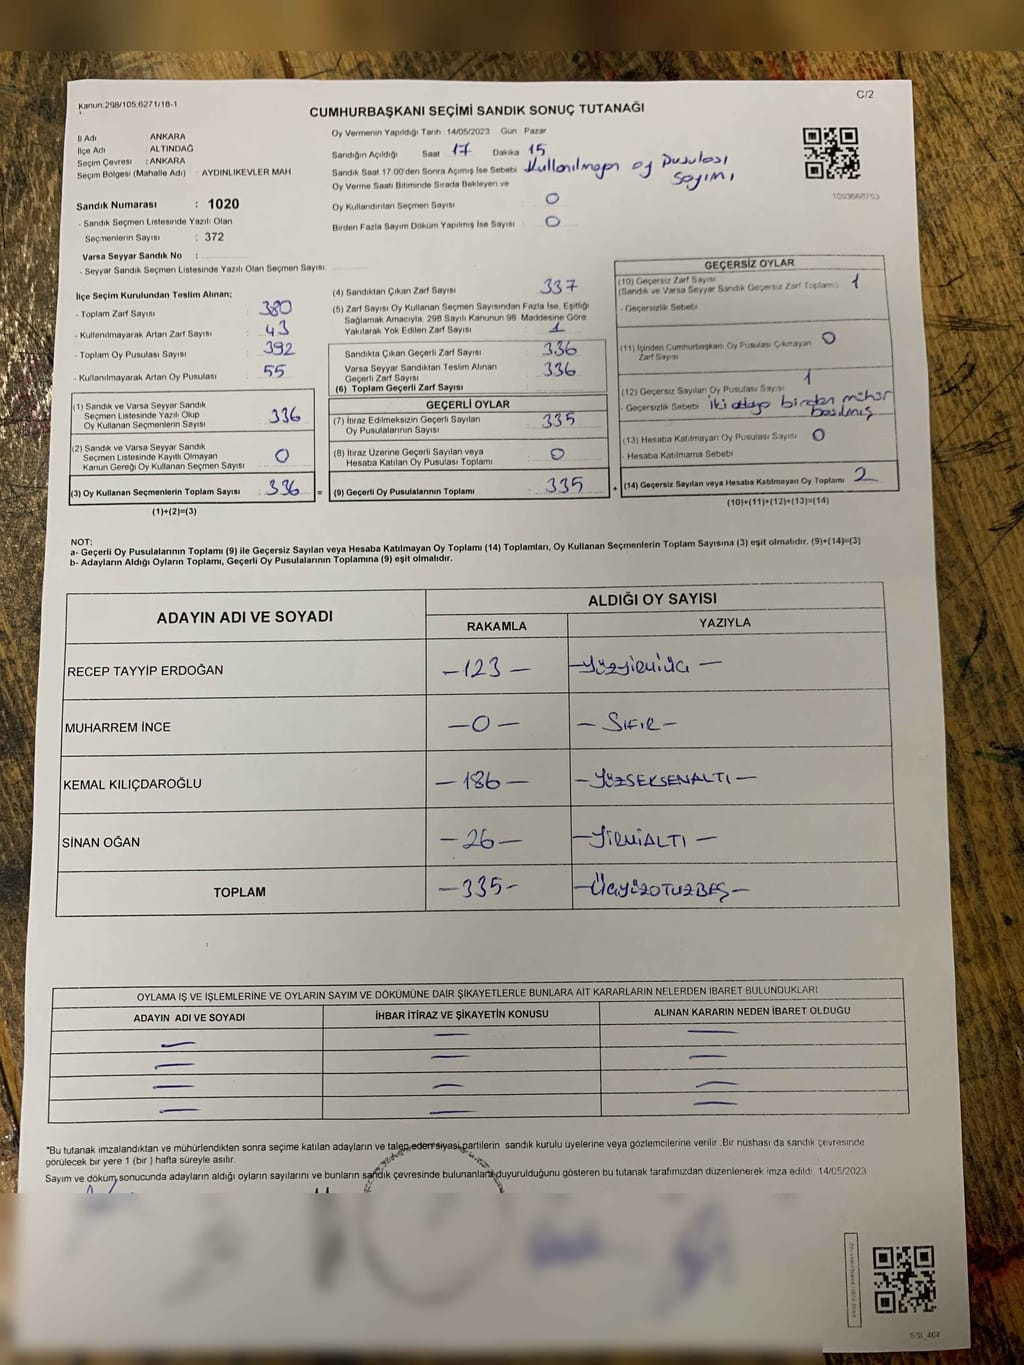 Kanun:298/105,6271/18-1
C/2
CUMHURBAŞKANI SEÇİMİ SANDIK SONUÇ TUTANAĞI
İl Adı : ANKARA
İlçe Adı : ALTINDAĞ
Seçim Çevresi : ANKARA
Seçim Bölgesi (Mahalle Adı) : AYDINLIKEVLER MAH
Sandık Numarası : 1020
- Sandık Seçmen Listesinde Yazılı Olan
Seçmenlerin Sayısı : 372
Varsa Seyyar Sandık No :
- Seyyar Sandık Seçmen Listesinde Yazılı Olan Seçmen Sayısı
Oy Vermenin Yapıldığı Tarih : 14/05/2023 Gün : Pazar
Sandığın Açıldığı Saat 17 Dakika 15
Sandık Saat 17.00'den Sonra Açımış İse Sebebi Kullanılmayan oy pusulası
sayımı
Oy Verme Saati Bitiminde Sırada Bekleyen ve
Oy Kullandırılan Seçmen Sayısı : 0
Birden Fazla Sayım Döküm Yapılmış İse Sayısı : 0
1093668753
İlçe Seçim Kurulundan Teslim Alınan;
- Toplam Zarf Sayısı : 380
- Kullanılmayarak Artan Zarf Sayısı : 43
- Toplam Oy Pusulası Sayısı : 392
- Kullanılmayarak Artan Oy Pusulası : 55
(1) Sandık ve Varsa Seyyar Sandık
Seçmen Listesinde Yazılı Olup
Oy Kullanan Seçmenlerin Sayısı : 336
(2) Sandık ve Varsa Seyyar Sandık
Seçmen Listesinde Kayıtlı Olmayan
Kanun Gereği Oy Kullanan Seçmen Sayısı : 0
(3) Oy Kullanan Seçmenlerin Toplam Sayısı : 336 =
(1)+(2)=(3)
(4) Sandıktan Çıkan Zarf Sayısı : 337
(5) Zarf Sayısı Oy Kullanan Seçmen Sayısından Fazla İse, Eşitliği
Sağlamak Amacıyla, 298 Sayılı Kanunun 98. Maddesine Göre
Yakılarak Yok Edilen Zarf Sayısı : 1
Sandıkta Çıkan Geçerli Zarf Sayısı : 336
Varsa Seyyar Sandıktan Teslim Alınan
Geçerli Zarf Sayısı : 336
(6) Toplam Geçerli Zarf Sayısı
GEÇERLİ OYLAR
(7) İtiraz Edilmeksizin Geçerli Sayılan
Oy Pusulalarının Sayısı : 335
(8) İtiraz Üzerine Geçerli Sayılan veya
Hesaba Katılan Oy Pusulası Toplamı : 0
(9) Geçerli Oy Pusulalarının Toplamı : 335 +
GEÇERSİZ OYLAR
(10) Geçersiz Zarf Sayısı
(Sandık ve Varsa Seyyar Sandık Geçersiz Zarf Toplamı) : 1
- Geçersizlik Sebebi
(11) İçinden Cumhurbaşkanı Oy Pusulası Çıkmayan
Zarf Sayısı : 0
(12) Geçersiz Sayılan Oy Pusulası Sayısı 1
- Geçersizlik Sebebi İki adaya birden mühür
basılmış
(13) Hesaba Katılmayan Oy Pusulası Sayısı : 0
- Hesaba Katılmama Sebebi
(14) Geçersiz Sayılan veya Hesaba Katılmayan Oy Toplamı : 2
(10)+(11)+(12)+(13)=(14)
NOT:
a- Geçerli Oy Pusulalarının Toplamı (9) ile Geçersiz Sayılan veya Hesaba Katılmayan Oy Toplamı (14) Toplamları, Oy Kullanan Seçmenlerin Toplam Sayısına (3) eşit olmalıdır. (9)+(14)=(3)
b- Adayların Aldığı Oyların Toplamı, Geçerli Oy Pusulalarının Toplamına (9) eşit olmalıdır.
ADAYIN ADI VE SOYADI
ALDIĞI OY SAYISI
RAKAMLA YAZIYLA
RECEP TAYYİP ERDOĞAN -123- -Yüzyirmiüç-
MUHARREM İNCE -0- -SIFIR-
KEMAL KILIÇDAROĞLU -186- -YÜZSEKSENALTI-
SİNAN OĞAN -26- -YİRMİALTI-
TOPLAM -335- -ÜÇYÜZOTUZBEŞ-
OYLAMA İŞ VE İŞLEMLERİNE VE OYLARIN SAYIM VE DÖKÜMÜNE DAİR ŞİKAYETLERLE BUNLARA AİT KARARLARIN NELERDEN İBARET BULUNDUKLARI
ADAYIN ADI VE SOYADI İHBAR İTİRAZ VE ŞİKAYETİN KONUSU ALINAN KARARIN NEDEN İBARET OLDUĞU
*Bu tutanak imzalandıktan ve mühürlendikten sonra seçime katılan adayların ve talep eden siyasi partilerin sandık kurulu üyelerine veya gözlemcilerine verilir .Bir nüshası da sandık çevresinde
görülecek bir yere 1 (bir ) hafta süreyle asılır.
Sayım ve döküm sonucunda adayların aldığı oyların sayılarını ve bunların sandık çevresinde bulunanlara duyurulduğunu gösteren bu tutanak tarafımızdan düzenlenerek imza edildi. 14/05/2023